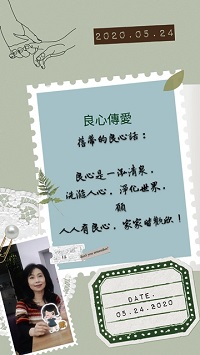 2020.05.24
良心傳愛
良心是一泓清泉，
洗滌人心，淨化世界，
願
人人有良心，家家時歡欣！
DATE.
05.24.2020